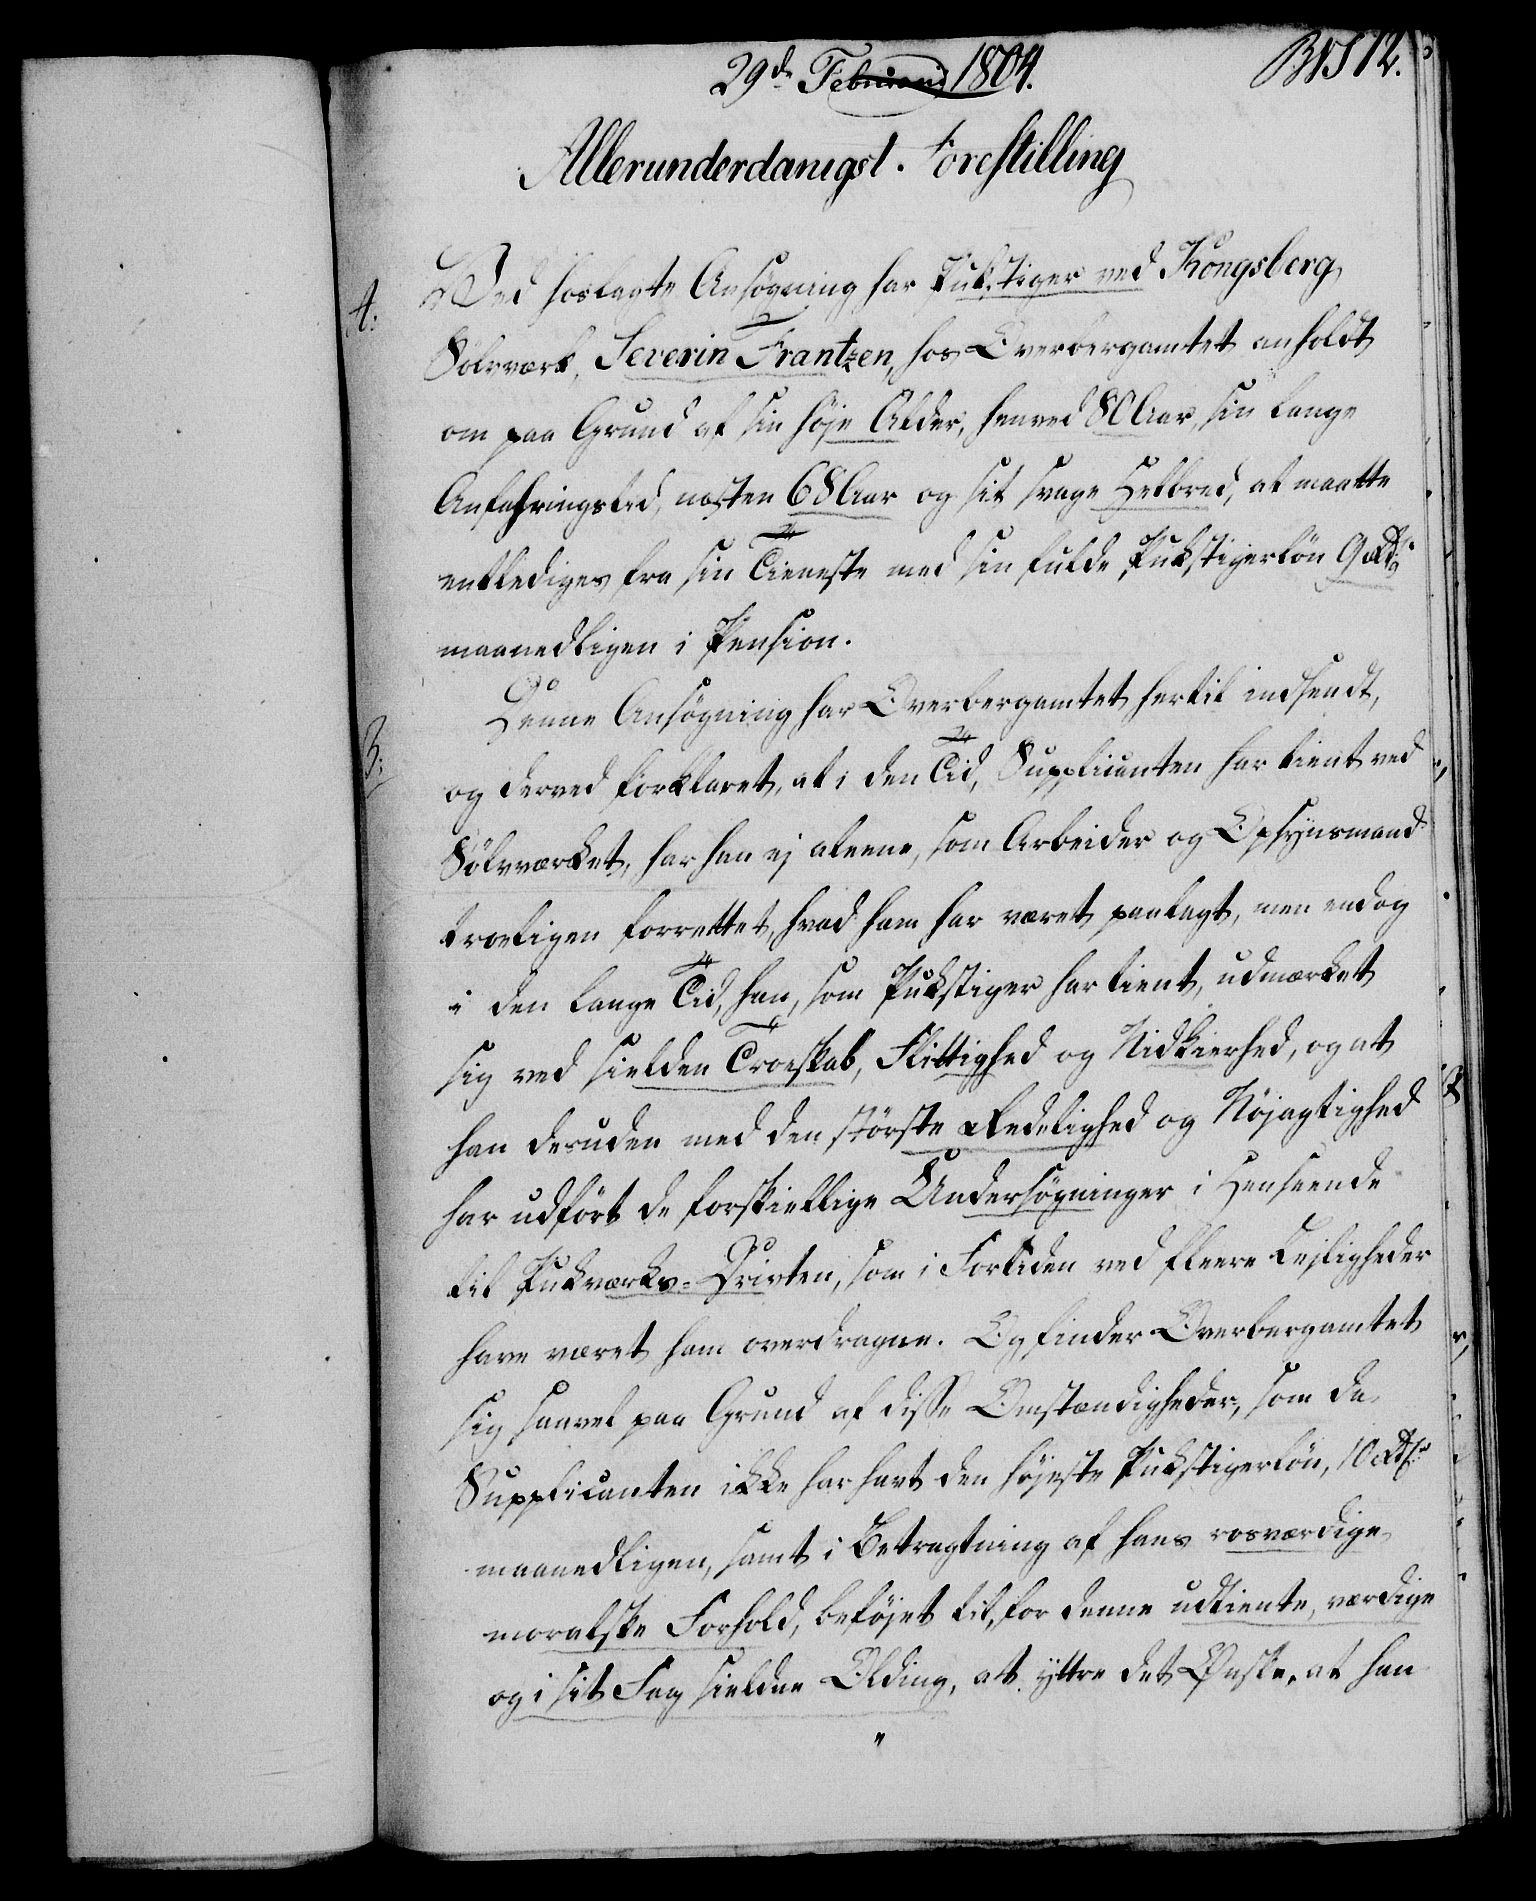 29de Februarii 1804.
Allerunderdanigst Forestilling
A.
Ved hoslagte Ansøgning har Pukstiger ved Kongsberg
Sølvværk, Severin Frantzen, hos Overbergamtet anholdt
om paa Grund af sin høje Alder, henved 80 Aar, sin lange
Anfahringstid, næsten 68 Aar og sit svage Helbred, at maatte
entlediges fra sin Tieneste med sin fulde Pukstigerløn 9 Rdlr
maanedligen i Pension.
B.
Denne Ansøgning har Overbergamtet hertil indsendt,
og derved forklaret, at i den Tid, Supplicanten har tient ved
Sølvværket, har han ej aleene, som Arbeider og Opsynsmand
troeligen forrettet, hvad ham har været paalagt, men endog
i den lange Tid, han, som Pukstiger har tient, udmærket
sig ved sielden Troeskab, Flittighed og Nidkierhed, og at
han desuden med den største Redelighed og Nøjagtighed
har udført de forskiellige Undersøgninger i Henseende
til Pukværks-Driften, som i Fortiden ved fleere Lejligheder
have været ham overdragne. Og finder Overbergamtet
sig saavel paa Grund af disse Omstændigheder, som da
Supplicanten ikke har havt den højeste Pukstigerløn, 10 Rdlr
maanedligen, samt i Betragtning af hans rosværdige
moralske Forhold, beføjet til, for denne udtiente, værdige
og i sit Fag sieldne Olding, at yttre det Ønske, at han